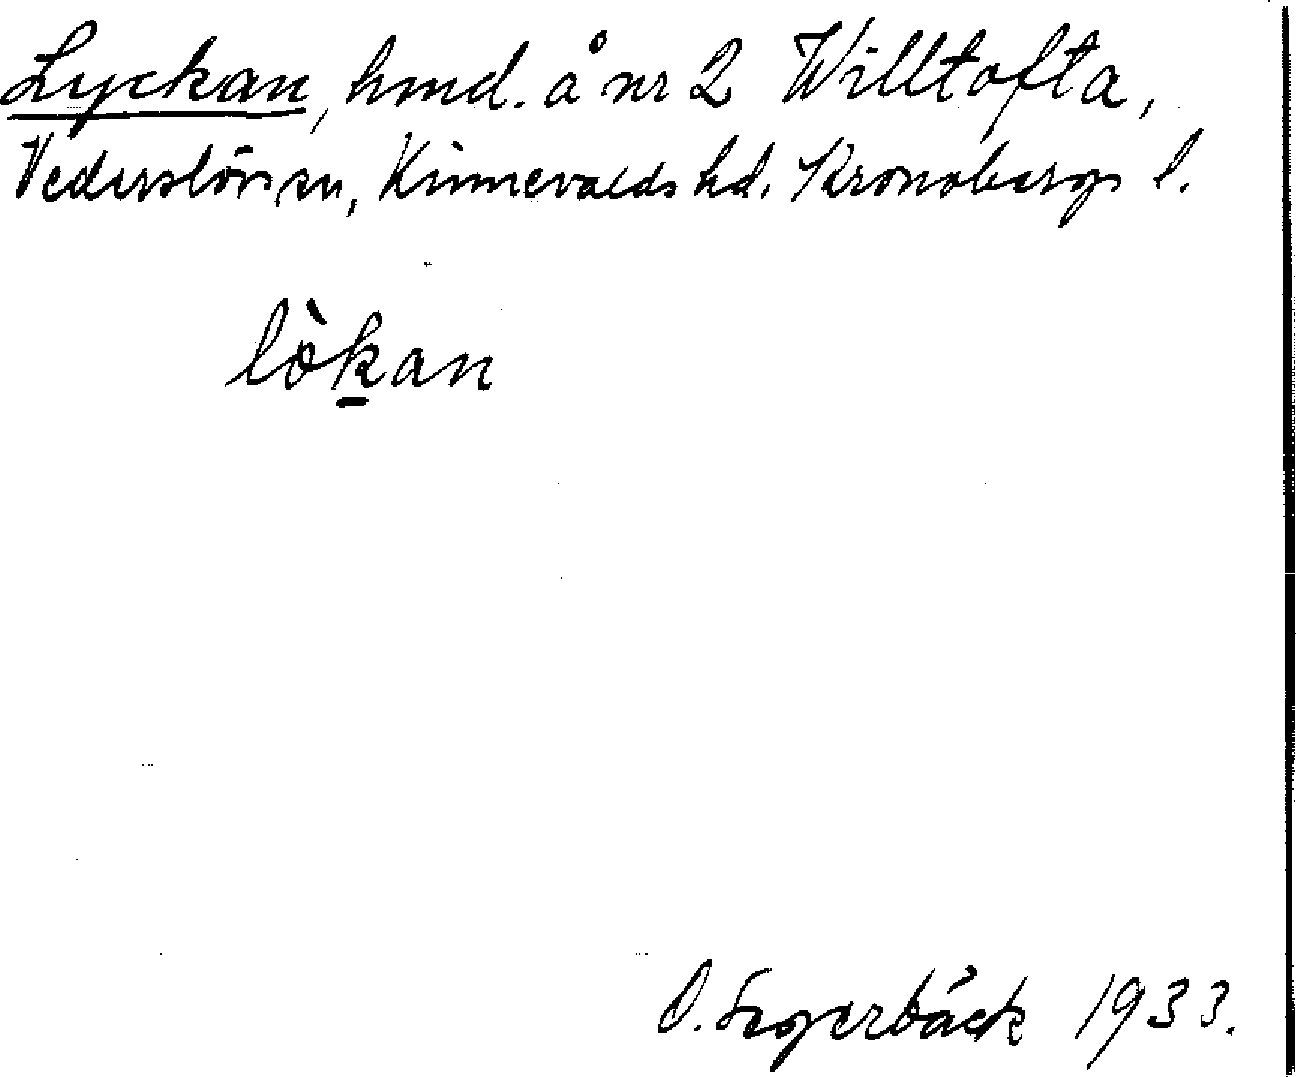 Lyckan, hmd. å nr 2 Willtofta,
Vederslövs sn, Kinnevalds hd. Kronobergs l.
lò̱kan
O. Segerbäck 1933.